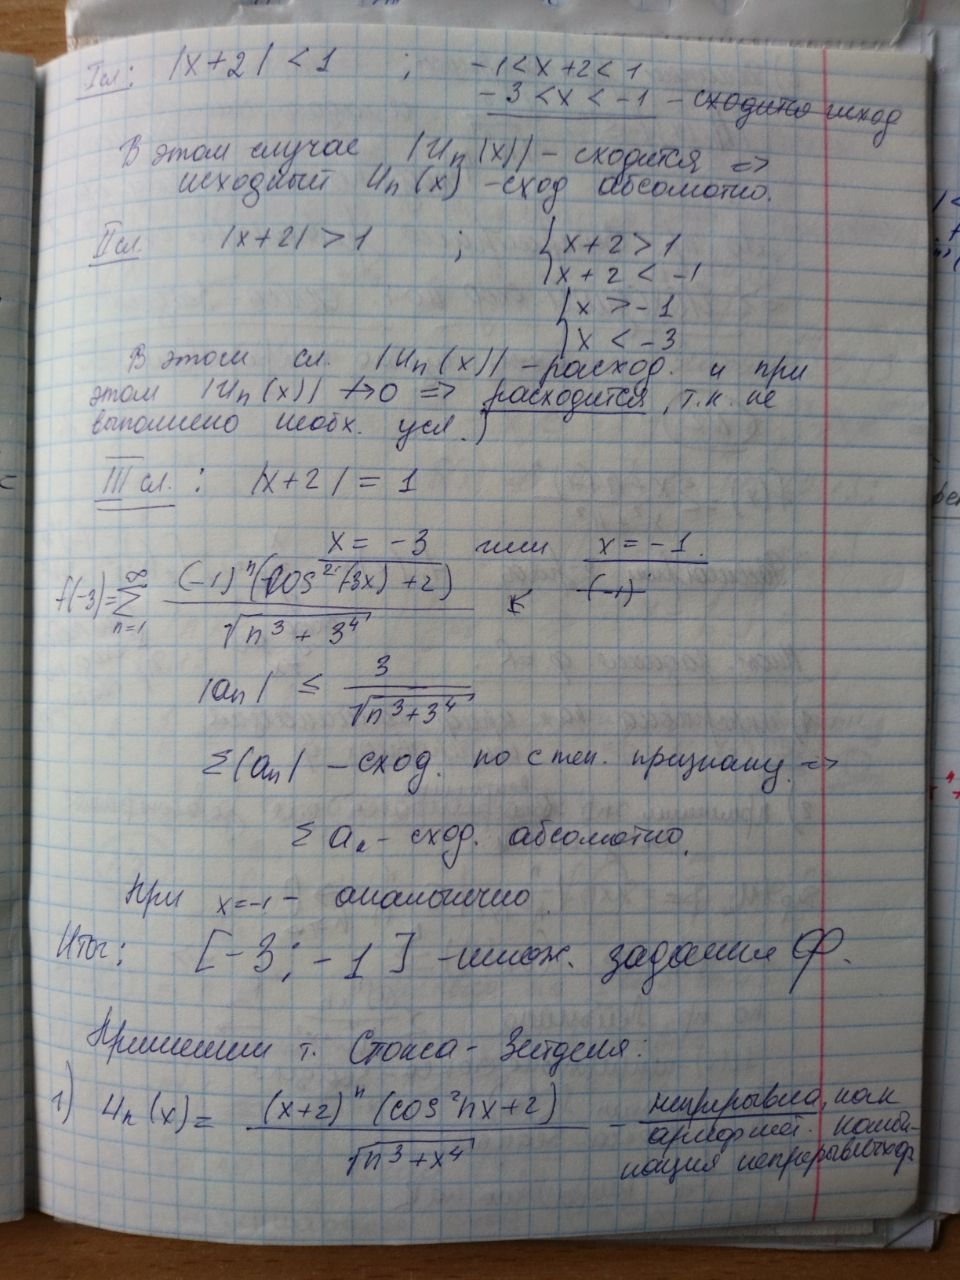 I сл: |x+2| < 1 ; -1 < x+2 < 1
-3 < x < -1 - сходится исход
В этом случае |Un(x)| - сходится =>
исходный Un(x) - сход абсолютно.
II сл. |x+2| > 1 ; { x+2 > 1
x+2 < -1
{ x > -1
x < -3
В этом сл. |Un(x)| - расход. и при
этом |Un(x)| ↛ 0 => расходится, т.к. не
выполнено необх. усл.)
III сл.: |x+2| = 1
x = -3 или x = -1.
f(-3) = ∞ Σ n=1 (-1)^n (cos²(3x) + 2) / √(n³ + 3⁴) (-1)
|an| ≤ 3 / √(n³+3⁴)
Σ|an| - сход. по степ. признаку =>
Σ an - сход. абсолютно.
При x=-1 - аналогично.
Итог: [-3; -1] - множ. задания Ф.
Применим т. Стокса - Зейделя:
1) Un(x) = (x+2)^n (cos² nx + 2) / √(n³+x⁴) - непрерывна, как
арифмей. комби-
нация непрерывных ф